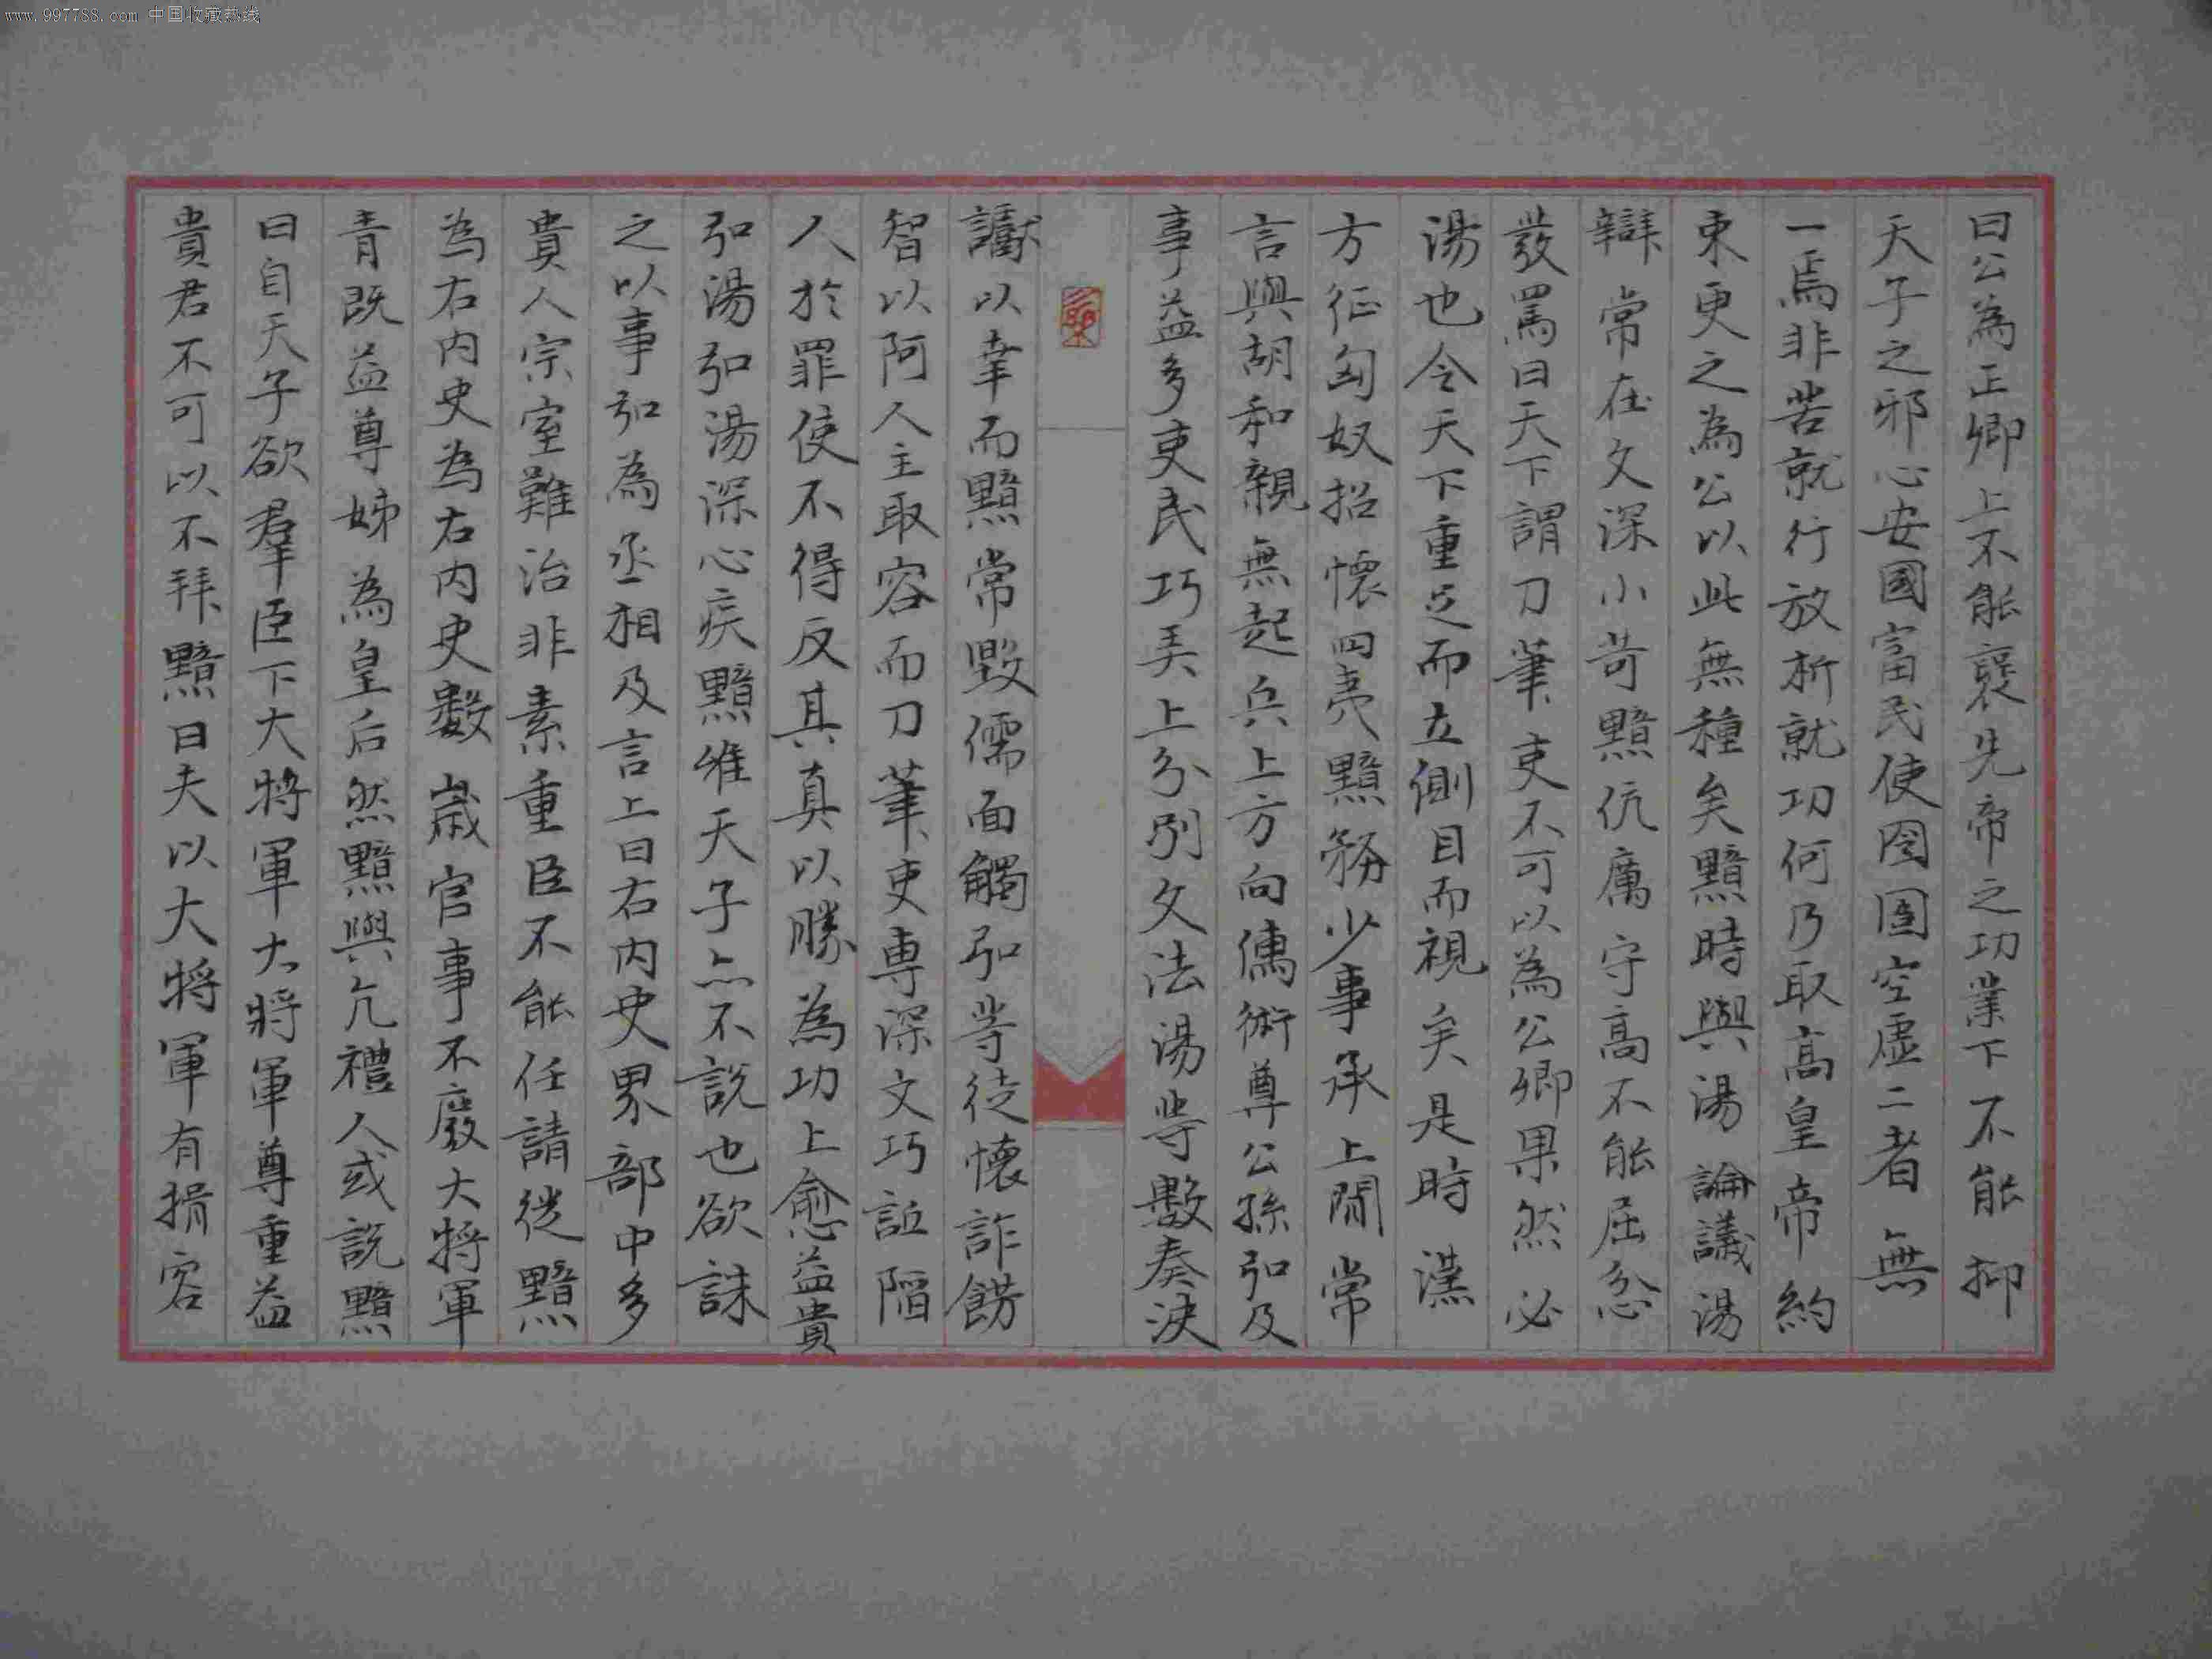 www.997788.com 中国收藏热线
曰公為正卿上不能襃先帝之功業下不能抑
天子之邪心安國富民使囹圄空虛二者無
一焉非苦就行放析就功何乃取高皇帝約
束更之為公以此無種矣黯時與湯論議湯
辯常在文深小苛黯伉厲守高不能屈忿
發罵曰天下謂刀筆吏不可以為公卿果然必
湯也令天下重足而立側目而視矣是時漢
方征匈奴招懷四夷黯務少事承上閒常
言與胡和親無起兵上方向儒術尊公孫弘及
事益多吏民巧弄上分別文法湯等數奏決
讞以幸而黯常毀儒面觸弘等徒懷詐飾
智以阿人主取容而刀筆吏專深文巧詆陷
人於罪使不得反其真以勝為功上愈益貴
弘湯弘湯深心疾黯唯天子亦不說也欲誅
之以事弘為丞相乃言上曰右內史界部中多
貴人宗室難治非素重臣不能任請徙黯
為右內史為右內史數歲官事不廢大將軍
青既益尊姊為皇后然黯與亢禮人或說黯
曰自天子欲羣臣下大將軍大將軍尊重益
貴君不可以不拜黯曰夫以大將軍有揖客